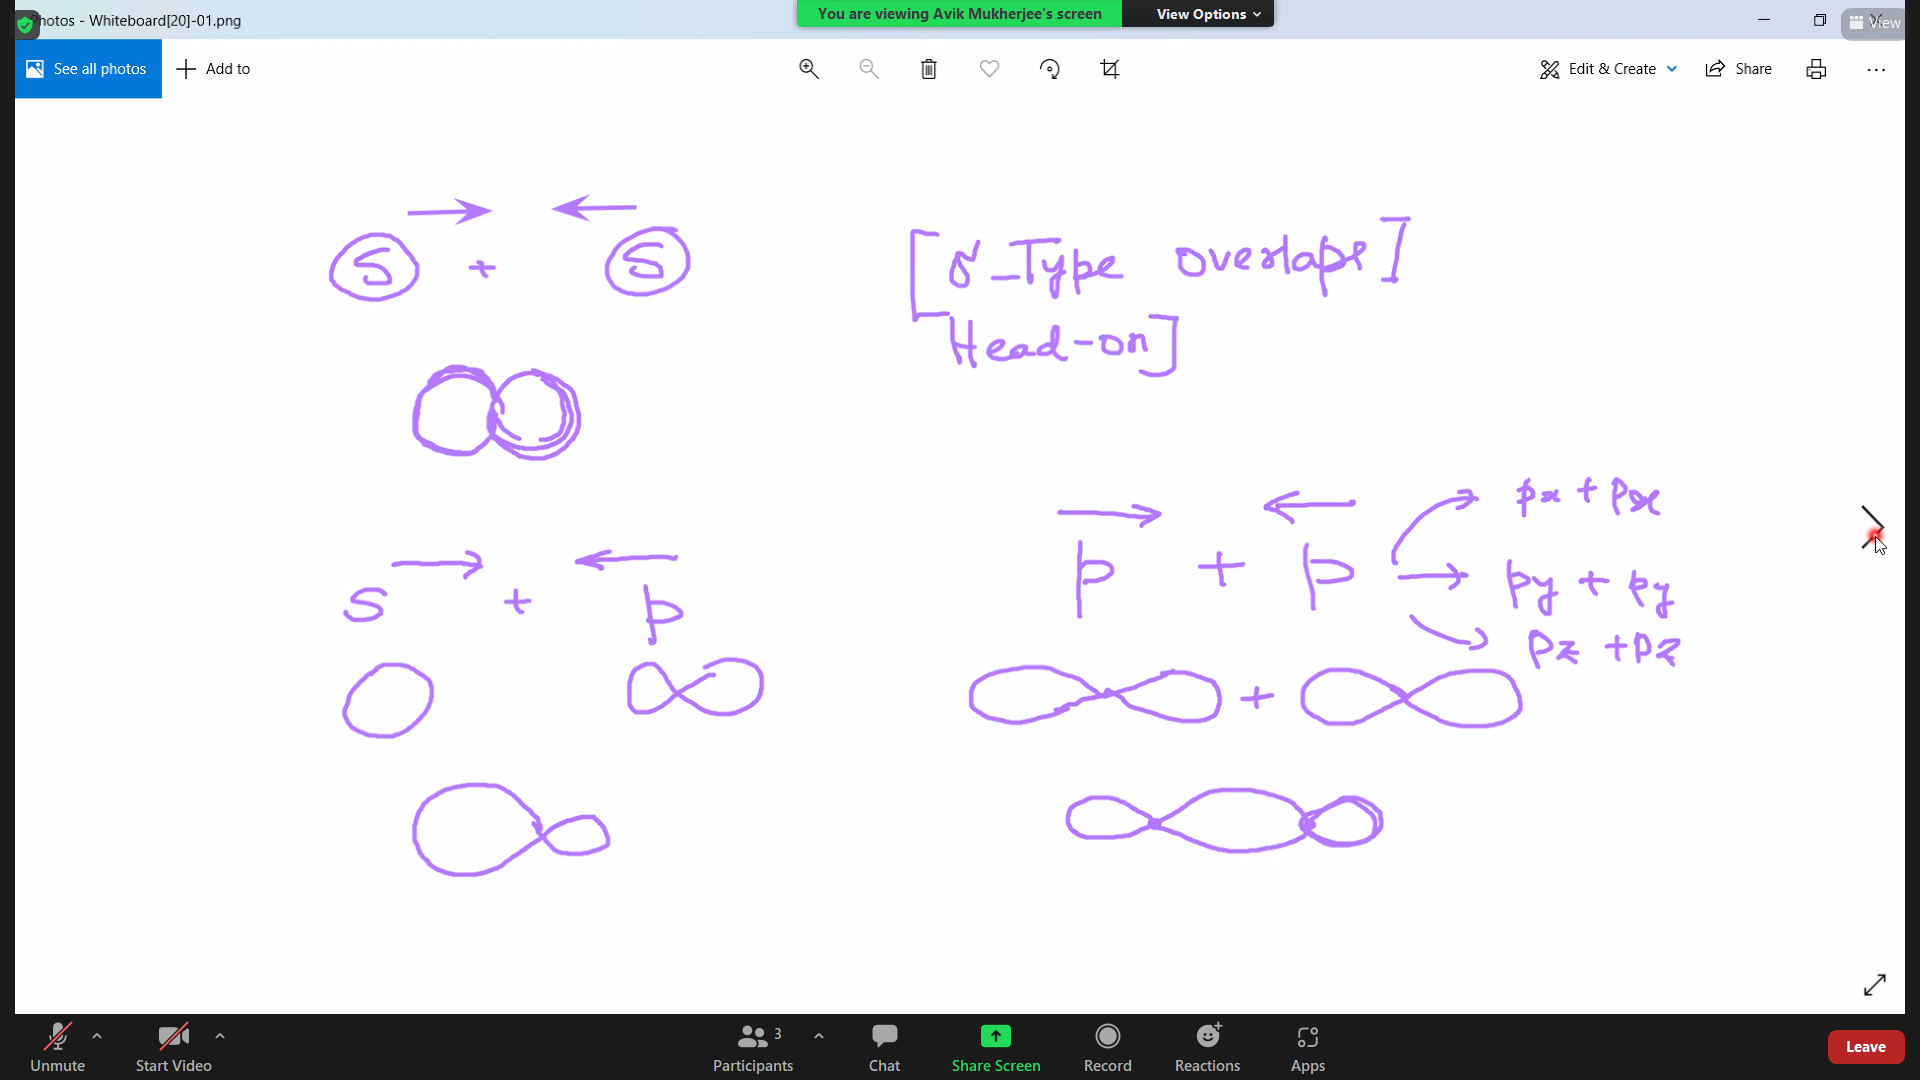 Photos - Whiteboard[20]-01.png
You are viewing Avik Mukherjee's screen
View Options
View
See all photos
Add to
Edit & Create
Share
S + S
[σ-Type overlaps]
Head-on]
s + p
p + p
px + px
py + py
pz + pz
+
Unmute
Start Video
Participants 3
Chat
Share Screen
Record
Reactions
Apps
Leave